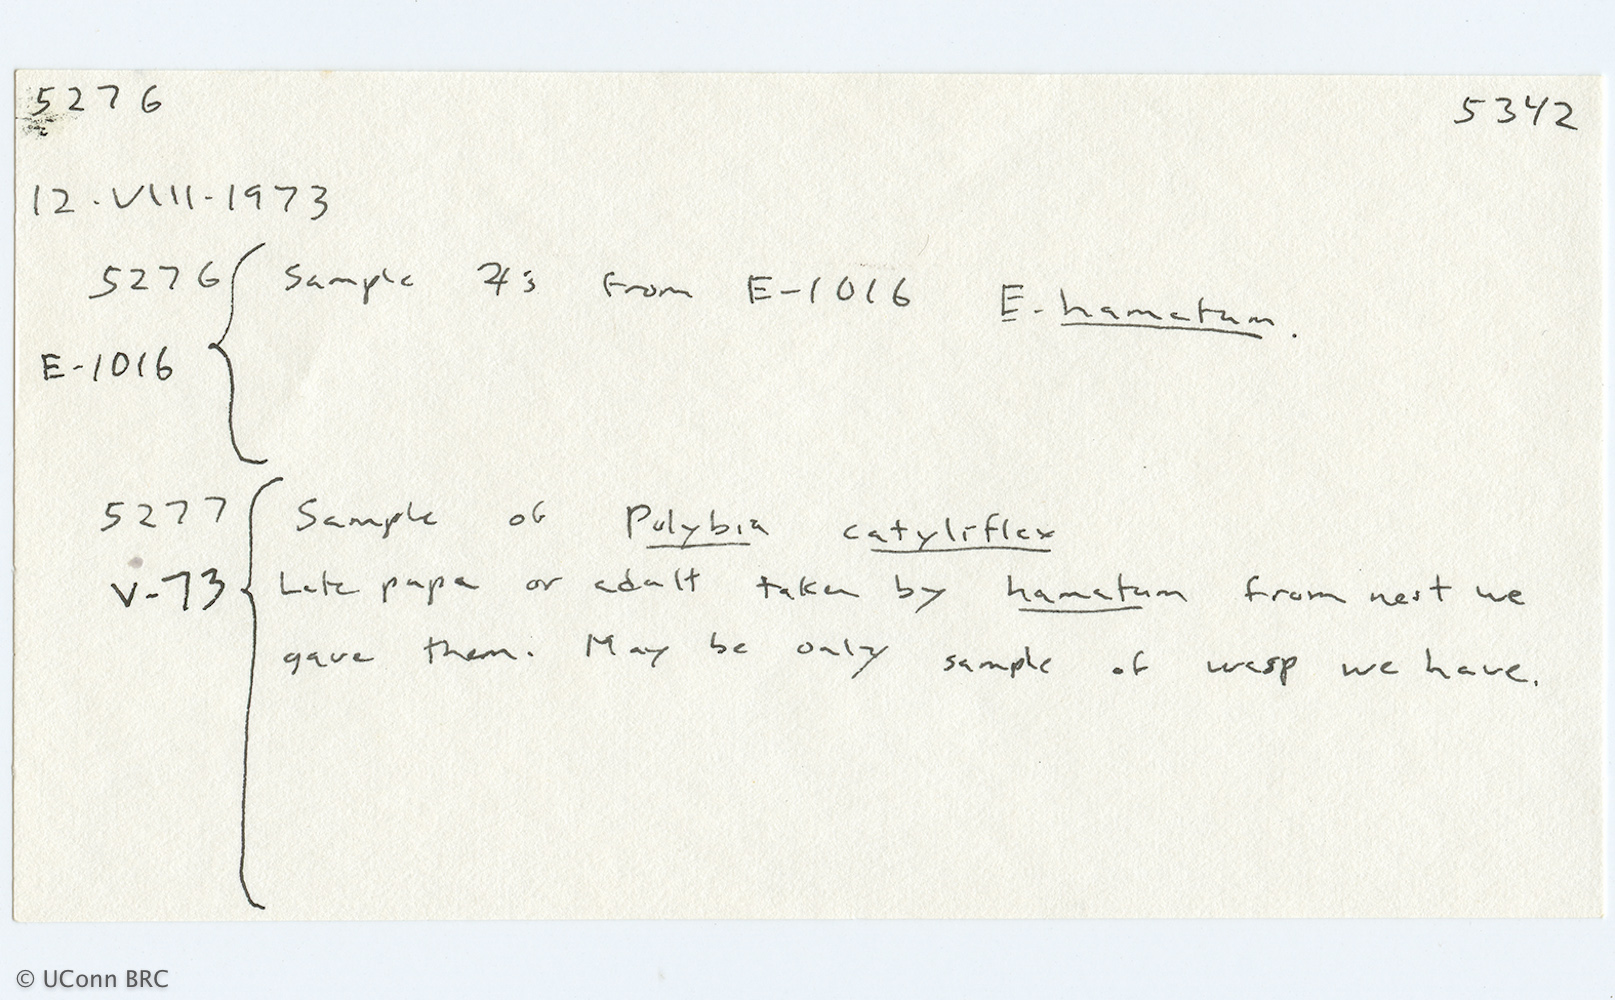 5276 5342
12.VIII-1973
5276 Sample ☿s from E-1016 E. hamatum.
E-1016
5277 Sample of Polybia catyliflex
V-73 Late pupa or adult taken by hamatum from nest we
gave them. May be only sample of wasp we have.
© UConn BRC